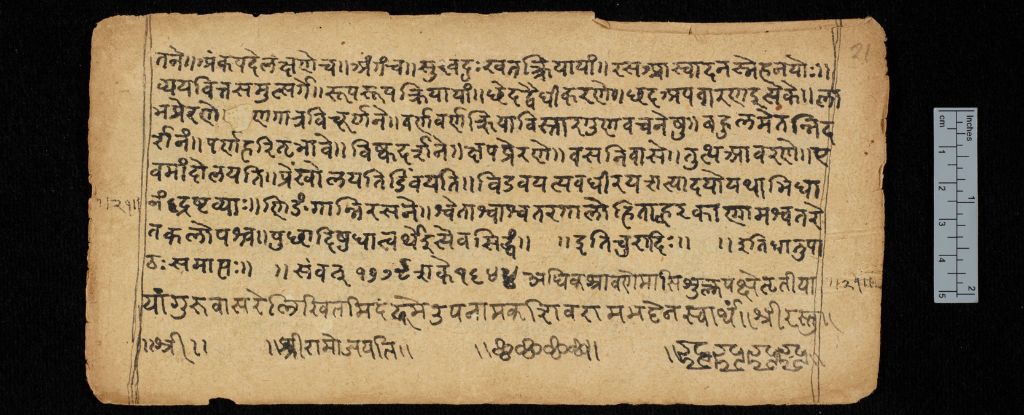 तने॥अंकपदेलक्षणेच॥अंगंच॥सुखदुःखतत्क्रियायां॥रसआस्वादनस्नेहनयोः॥
व्ययवित्तसमुत्सर्गे॥रूपरूपक्रियायां॥छेदद्वैधीकरणे॥छदअपवारणइत्येके॥ला
भप्रेरणे॥ व्रणगात्रविचूर्णने॥वर्णवर्णक्रियाविस्तारगुणवचनेषु॥बहुलमेतन्निद
र्शनं॥पर्णहरितभावे॥विष्कदर्शने॥क्षपप्रेरणे॥वसनिवासे॥तुत्थआवरणे॥ए
वमांदोलयति॥प्रेंखोलयति॥विडवयत्यवधीरयत्यादयोयथाभिधा
नंद्रष्टव्याः॥णिङंगान्निरसने॥श्वेताश्वाश्वतरगालोडिताह्वरकाणामश्वतरे
तकलोपश्च॥पुछादिषुधात्वर्थेइत्येवसिद्धं॥ ॥इतिचुरादिः॥ ॥इतिधातुपा
ठःसमाप्तः॥ ॥संवत् १७७९ शके १६४४ अधिकश्रावणेमासिशुक्लपक्षेतृतीया
यांगुरुवासरेलिखितमिदं स्वार्थं॥श्रीरस्तु॥
॥श्री॥ ॥श्रीरामोजयति॥
॥२१॥
॥२१॥
21
cm 1 2 3 4 5
Inches 1 2